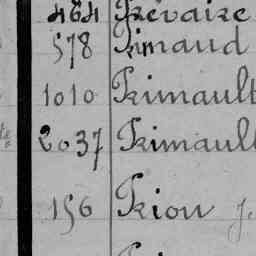 464 Privaire
578 Rimaud
1010 Rimault
2037 Rimault
156 Rion J.